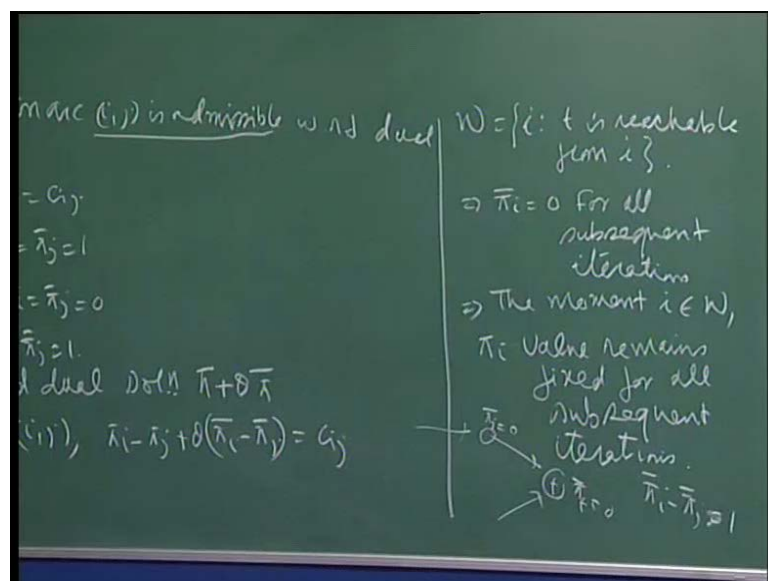 arc (i,j) is admissible w r t dual
= cij
= π̄j = 1
= π̄j = 0
π̄j = 1.
dual soln π̄ + θπ̄
(i,j), π̄i - π̄j + θ(π̄i - π̄j) = cij
W = {i : t is reachable
from i}.
⇒ π̄i = 0 for all
subsequent
iterations
⇒ The moment i ∈ W,
πi value remains
fixed for all
subsequent
iterations.
π̄=0
t π̄=0 π̄i - π̄j = 1